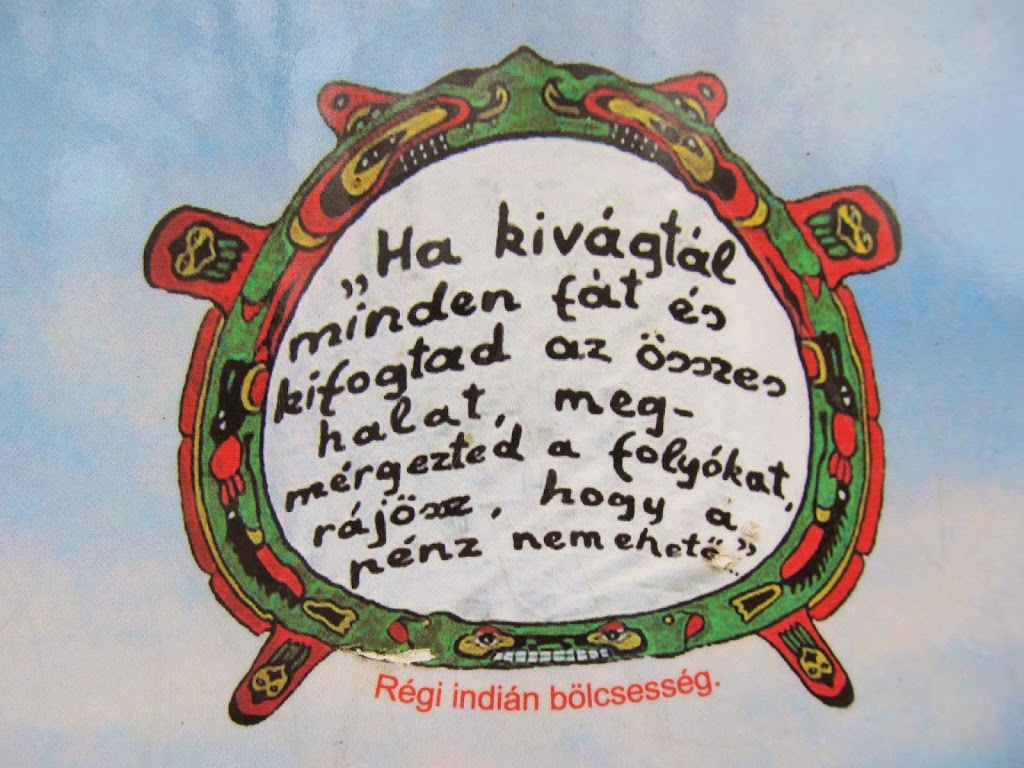 „Ha kivágtál
minden fát és
kifogtad az összes
halat, meg-
mérgezted a folyókat,
rájössz, hogy a
pénz nem ehető."
Régi indián bölcsesség.